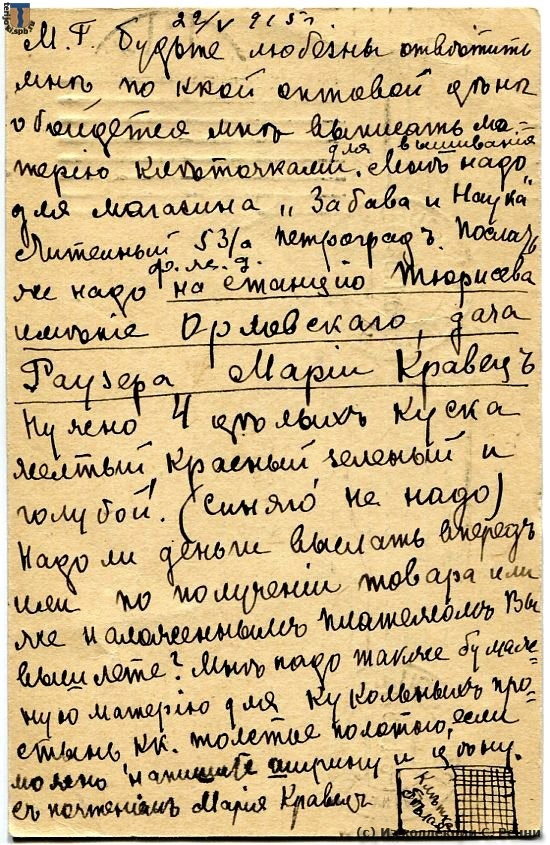 29/V 915 г
М. Г. будьте любезны отвѣтить
мнѣ по какой оптовой цѣнѣ
обойдется мнѣ выписать ма-
для вышиванія
терію клѣточками. Мнѣ надо
для магазина „Забава и Наука"
Литейный 53/а Петроградъ. Послать
ф. ж. д.
же надо на станцію Тюрисева
имѣніе Орловскаго, дача
Раузера Маріи Кравецъ
Нужно 4 цѣлыхъ куска
желтый, красный, зеленый и
голубой. (Синяго не надо)
Надо ли деньги выслать впередъ
или по полученіи товара или
же наложеннымъ платежомъ Вы
вышлете? Мнѣ надо также бумаж-
ную матерію для кукольныхъ про-
стынь кк. толстые полотно, если
можно напишите ширину и цѣну.
Съ почтеніемъ Марія Кравецъ
Клѣтка
бѣлая
terijoki.spb.ru
(с) Из коллекции С. Ренни